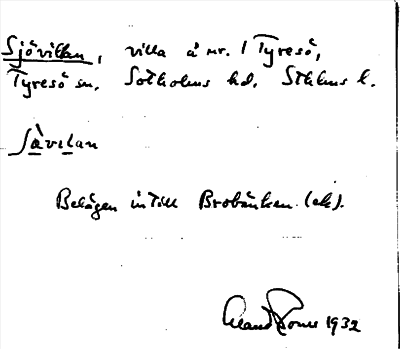 Sjövillan, villa å nr. 1 Tyresö,
Tyresö sn. Sotholms hd. Sthlms l.
Sävilan
Belägen intill Brobänken (ek).
1932